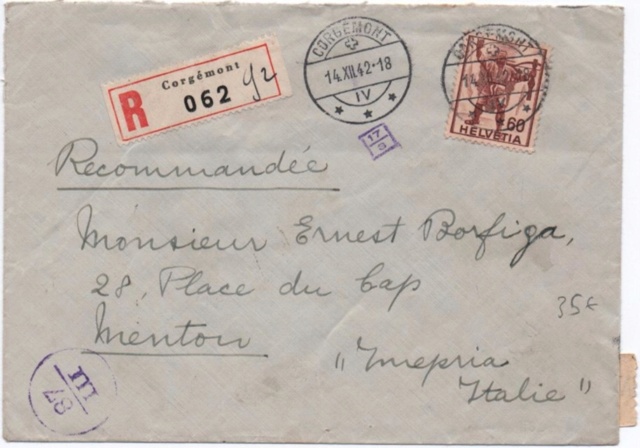 Corgémont
R 062 92
CORGÉMONT
14.XII.42-18
IV
CORGÉMONT
60
HELVETIA
17
a
Recommandée
Monsieur Ernest Borfiga,
28, Place du Cap
Menton
35€
„Imepria
Italie"
III
87